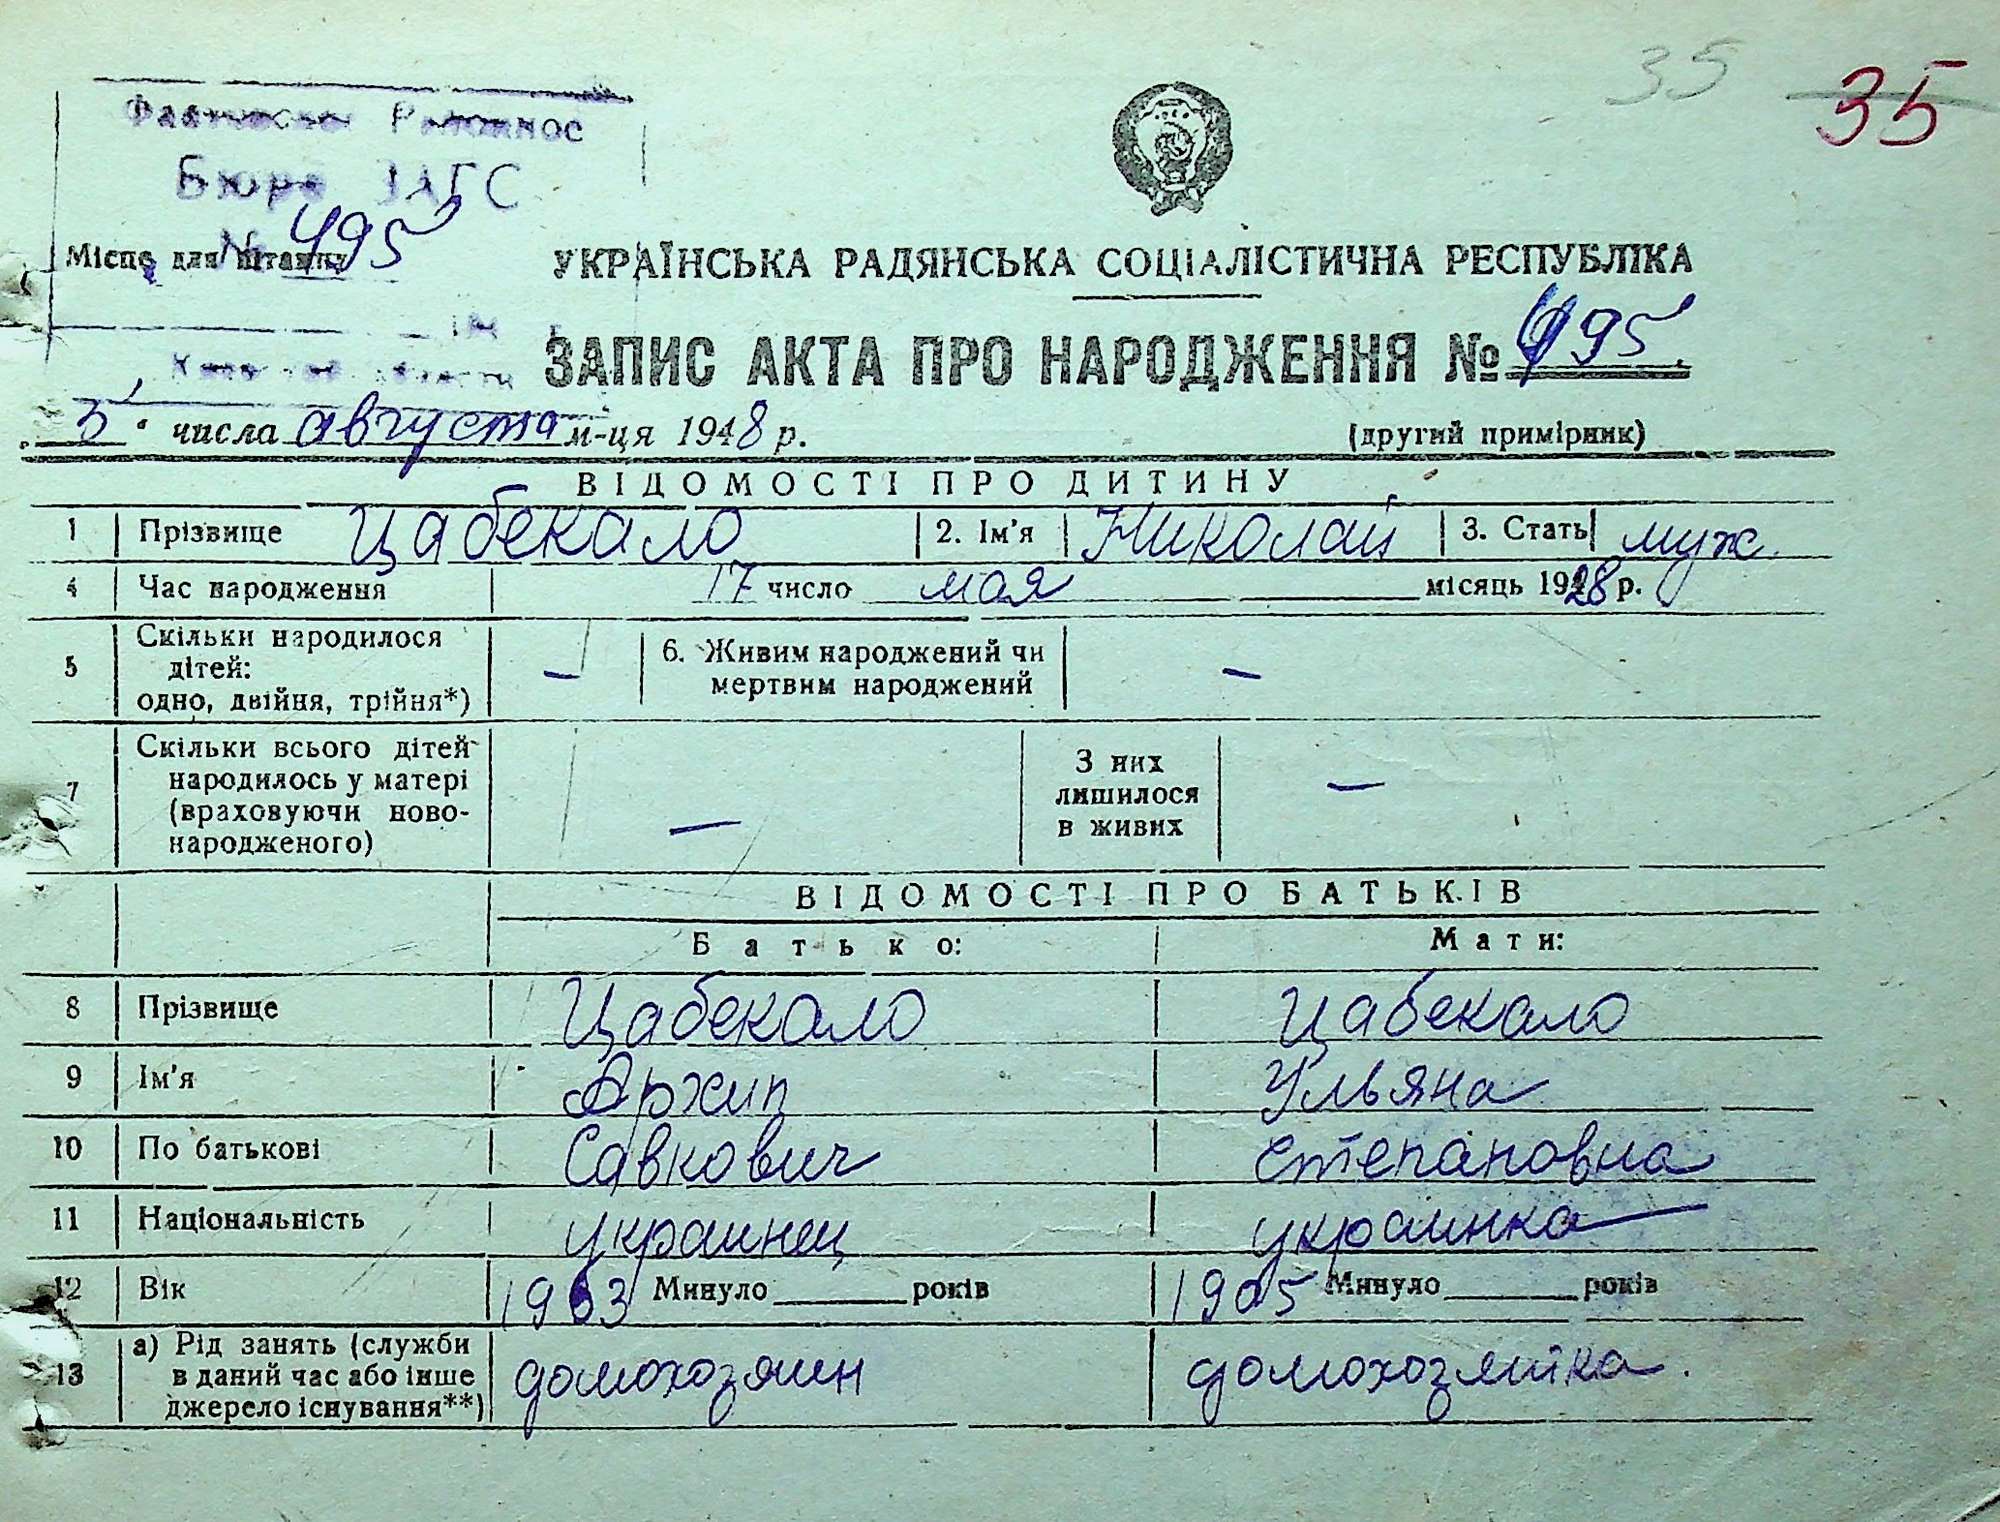 35 35
Районное
Бюро ЗАГС
№ 495
Місце для штампу
УКРАЇНСЬКА РАДЯНСЬКА СОЦІАЛІСТИЧНА РЕСПУБЛІКА
области
ЗАПИС АКТА ПРО НАРОДЖЕННЯ № 495
5 числа августа м-ця 1948 р. (другий примірник)
ВІДОМОСТІ ПРО ДИТИНУ
1 Прізвище Цабекало 2. Ім'я Николай 3. Стать муж.
4 Час народження 17 число мая місяць 1928 р.
5 Скільки народилося дітей: одно, двійня, трійня*) — 6. Живим народжений чи мертвим народжений —
7 Скільки всього дітей народилось у матері (враховуючи ново-народженого) — З них лишилося в живих —
ВІДОМОСТІ ПРО БАТЬКІВ
Батько: Мати:
8 Прізвище Цабекало Цабекало
9 Ім'я Архип Ульяна
10 По батькові Савкович Степановна
11 Національність украинец украинка
12 Вік 1903 Минуло років 1905 Минуло років
13 а) Рід занять (служби в даний час або інше джерело існування**) домохозяин домохозяйка.